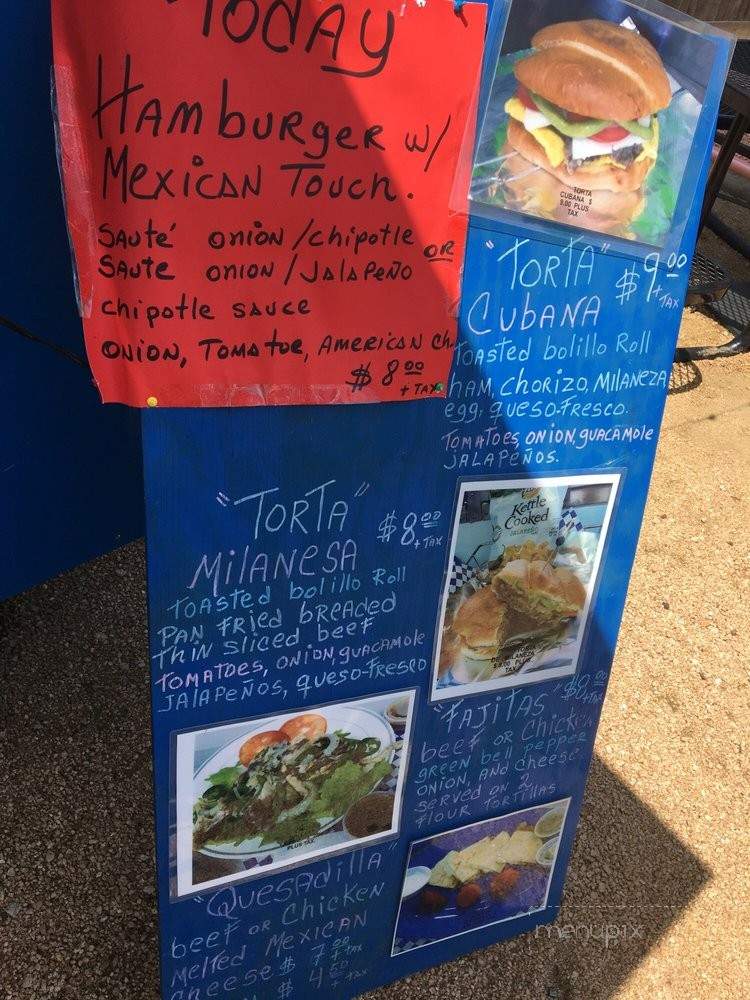 Today
Hamburger w/
Mexican Touch.
Sauté onion/chipotle OR
Saute onion/Jalapeño
chipotle sauce
onion, Tomatoe, American Ch
$8.00
+ TAX
TORTA
CUBANA $
9.00 PLUS
TAX
"TORTA" $9.00
+ TAX
CUBANA
Toasted bolillo Roll
HAM, Chorizo, Milaneza
egg, queso-fresco.
Tomatoes, onion, guacamole
Jalapeños.
"TORTA" $8.00
+ TAX
Milanesa
Toasted bolillo Roll
Pan Fried breaded
Thin sliced beef
Tomatoes, onion, guacamole
Jalapeños, queso-Fresco
Kettle
Cooked
JALAPENO
PLUS
TAX
"Fajitas" $8.00
+ TAX
beef or Chicken
green bell pepper
onion, and cheese
served on 2
flour Tortillas
PLUS TAX
"Quesadilla"
beef or Chicken
Melted Mexican
cheese $7.00
+ TAX
$4.50
+ TAX
menupix